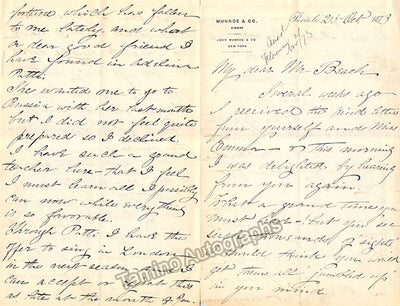 MUNROE & CO.
PARIS
JOHN MUNROE & CO.
NEW YORK
Paris 25 Oct 1873
My dear Mr. Beach
Several weeks ago
I received the kind letters
from yourself and Miss
Emma - & this morning
I was delighted by hearing
from you again.
What a grand time you
must - but you see
such crowds of sights
I should think you would
get them all "jumbled up"
in your mind
fortune which has fallen
to me lately, and what
a dear good friend I
have found in Adelina
Patti.
She wanted me to go to
Russia with her last month
but I did not feel quite
prepared so I declined.
I have such a grand
teacher here - that I feel
I must learn all I possibly
can now while everything
is so favorable.
Through Patti, I have the
offer to sing in London
in the next season
I can accept or this
as late as the month of
Tamino Autographs